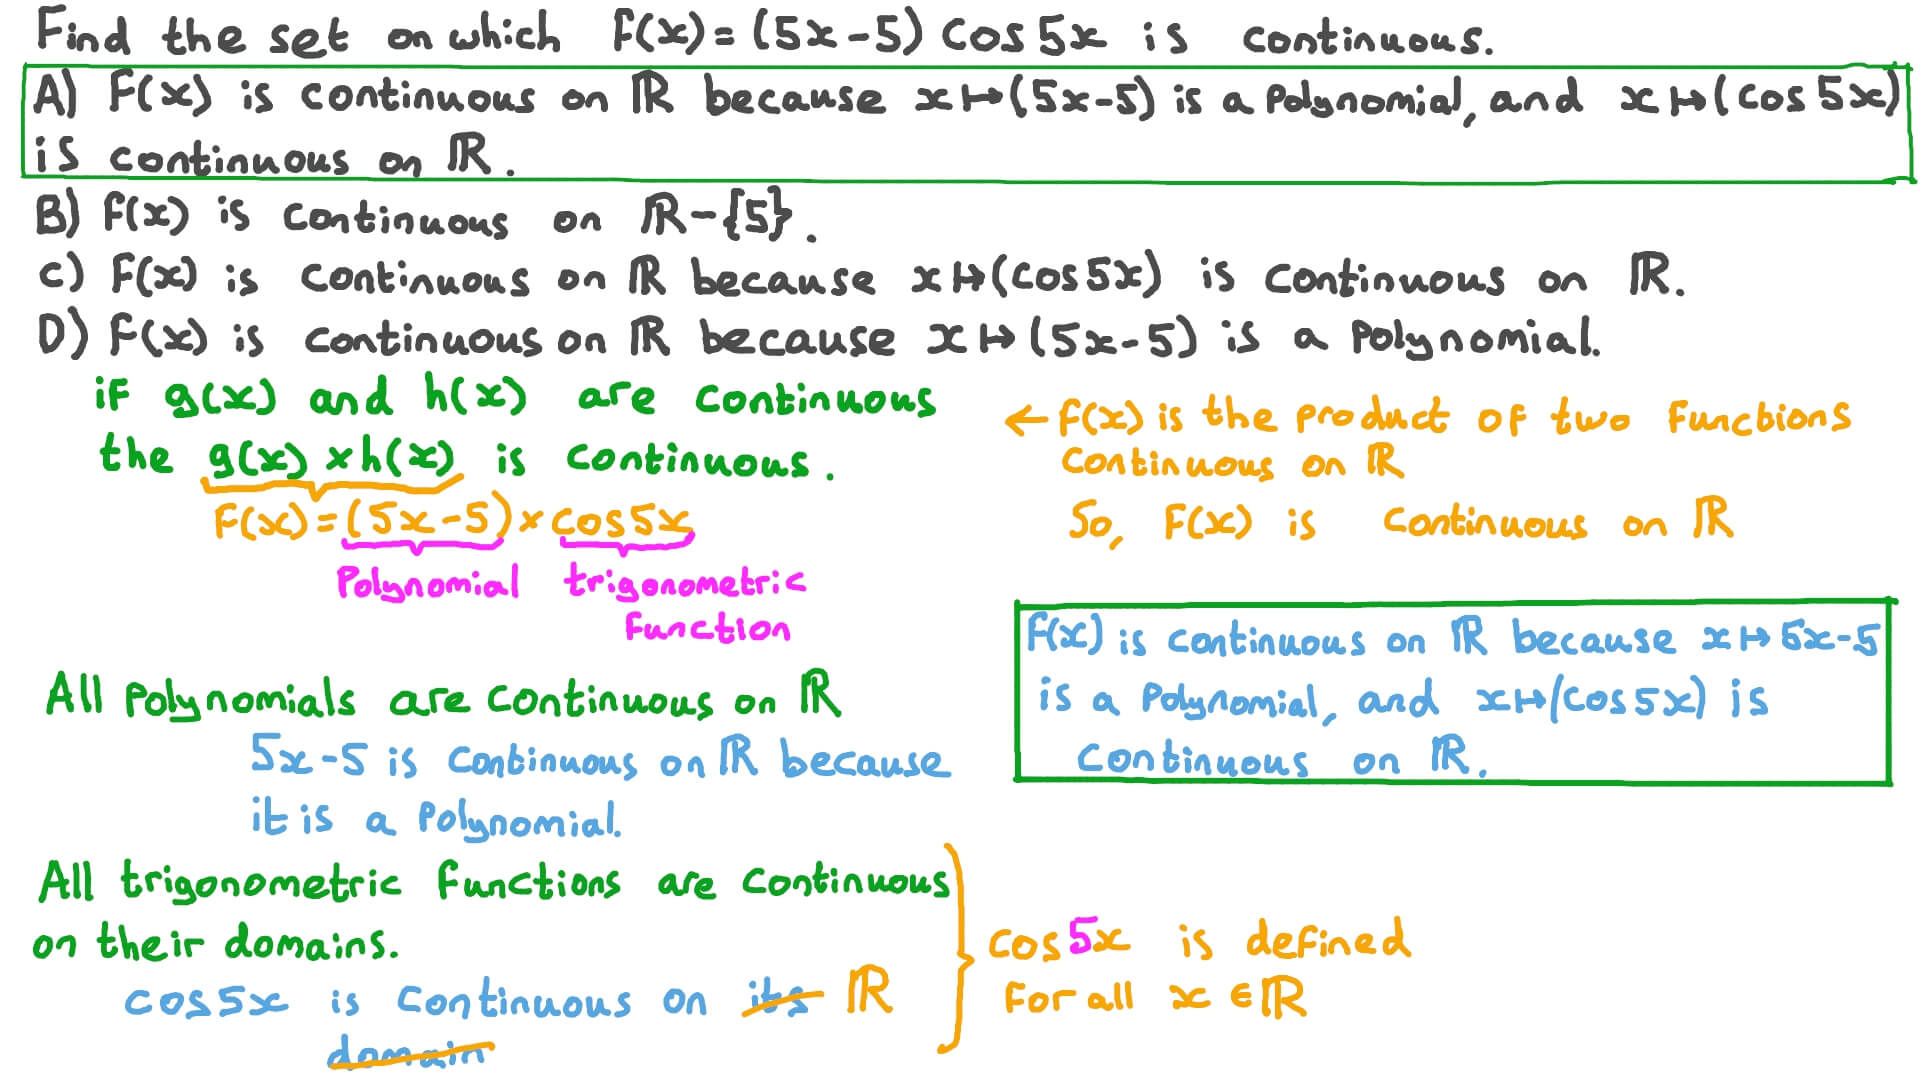 Find the set on which f(x) = (5x-5) cos 5x is continuous.
A) f(x) is continuous on ℝ because x ↦ (5x-5) is a polynomial, and x ↦ (cos 5x)
is continuous on ℝ.
B) f(x) is continuous on ℝ-{5}.
C) f(x) is continuous on ℝ because x ↦ (cos 5x) is continuous on ℝ.
D) f(x) is continuous on ℝ because x ↦ (5x-5) is a polynomial.
if g(x) and h(x) are continuous
the g(x) × h(x) is continuous.
f(x) = (5x-5) × cos 5x
polynomial trigonometric
function
← f(x) is the product of two functions
continuous on ℝ
So, f(x) is continuous on ℝ
f(x) is continuous on ℝ because x ↦ 5x-5
is a polynomial, and x ↦ (cos 5x) is
continuous on ℝ.
All polynomials are continuous on ℝ
5x-5 is continuous on ℝ because
it is a polynomial.
All trigonometric functions are continuous
on their domains.
cos 5x is continuous on its ℝ
domain
cos 5x is defined
for all x ∈ ℝ